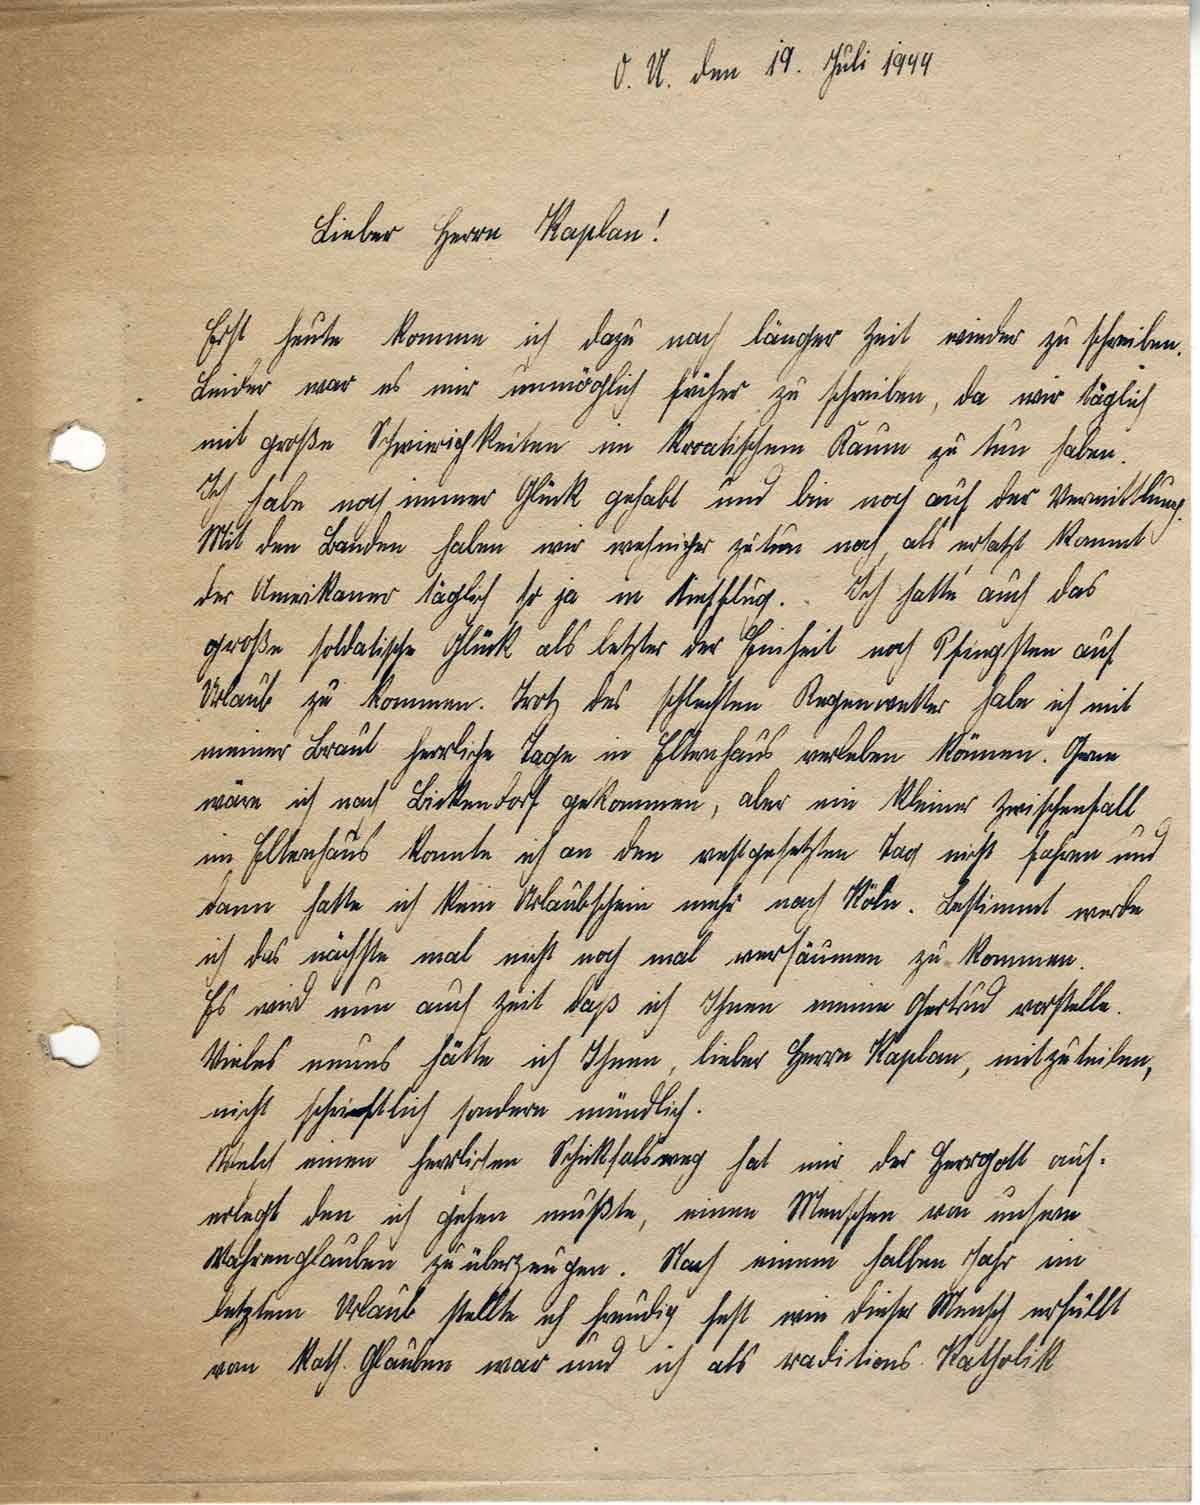 O. U. den 19. Juli 1944
Lieber Herrn Kaplan!
Erst heute komme ich dazu nach länger Zeit wieder zu schreiben.
Leider war es mir unmöglich früher zu schreiben, da wir täglich
mit große Schwierichkeiten im kroatischem Raum zu tun haben.
Ich habe noch immer Glück gehabt und bin noch auf der Vermittlung.
Mit den Banden haben wir weniger zutun noch als ersatzt kommt
der Amerikaner täglich so ja in Tiefflug. Ich hatte auch das
große soldatische Glück als letzter der Einheit noch Pfingsten auf
Urlaub zu kommen. Trotz des schlechten Regenwetter habe ich mit
meiner Braut herrliche Tage in Elternhaus verleben können. Gerne
wäre ich nach Bickendorf gekommen, aber ein kleiner Zwischenfall
im Elternhaus konnte ich an den vestgesetzten Tag nicht fahren und
dann hatte ich kein Urlaubschein mehr nach Köln. Bestimmt werde
ich das nächste mal nicht noch mal versäumen zu kommen.
Es wird nun auch Zeit daß ich Ihnen meine Gertrud vorstelle.
Vieles neues hätte ich Ihnen, lieber Herrn Kaplan, mitzuteilen,
nicht schriftlich sondern mündlich.
Welch einen herrlichen Schicksalsweg hat mir der Herrgott auf-
erlegt den ich gehen mußte, einen Menschen von unsern
Wahrenglauben zu überzeugen. Nach einem halben Jahr im
letztem Urlaub stellte ich freudig fest wie dieser Mensch erfüllt
vom Kath. Glauben war und ich als raditions Katholik